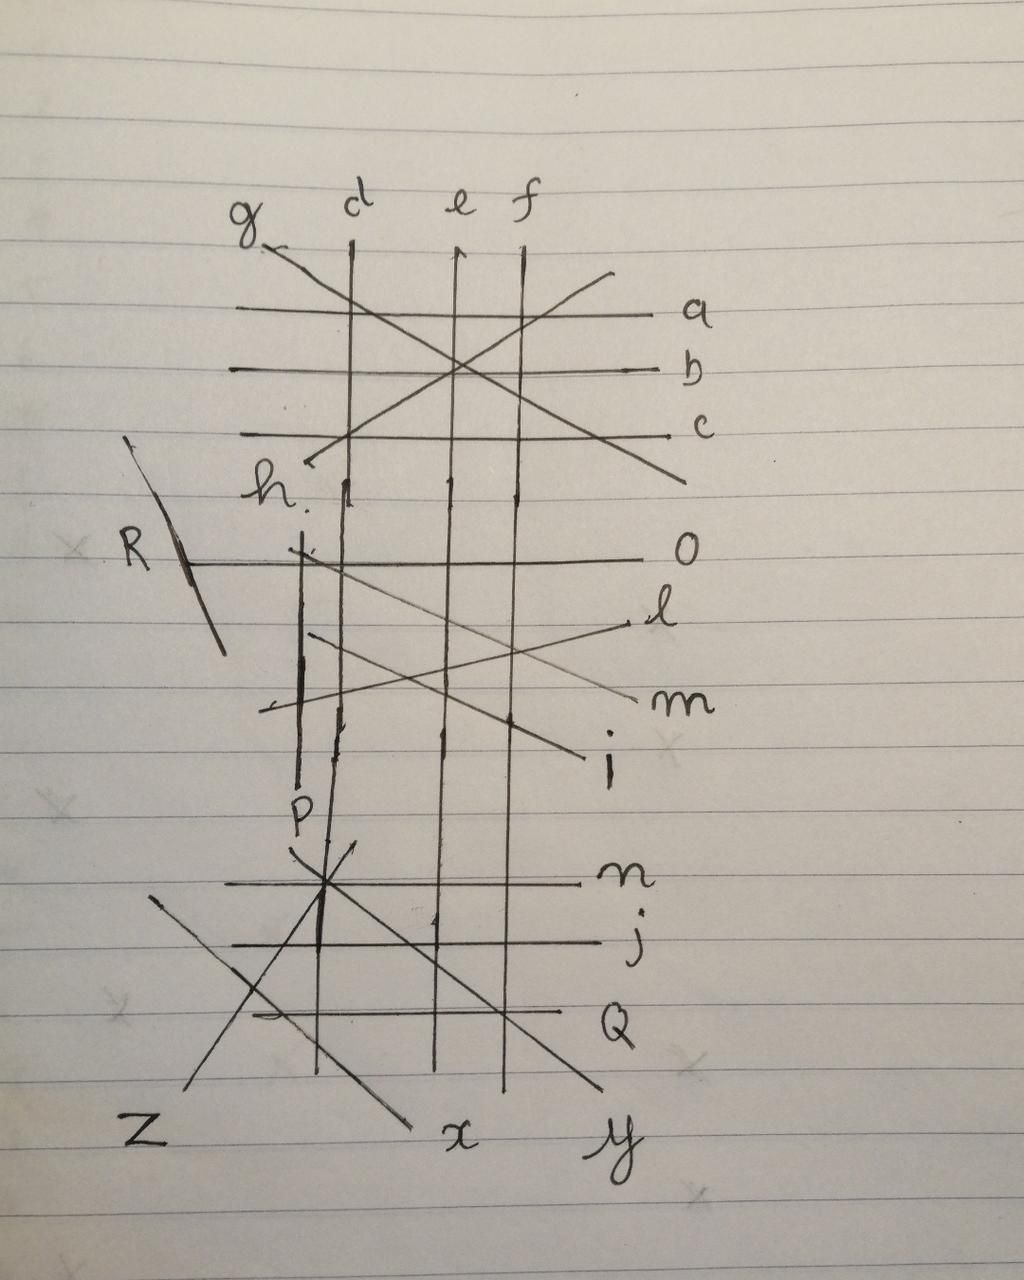 g d e f
a
b
c
h
R O
l
m
i
P
n
j
Q
Z x y